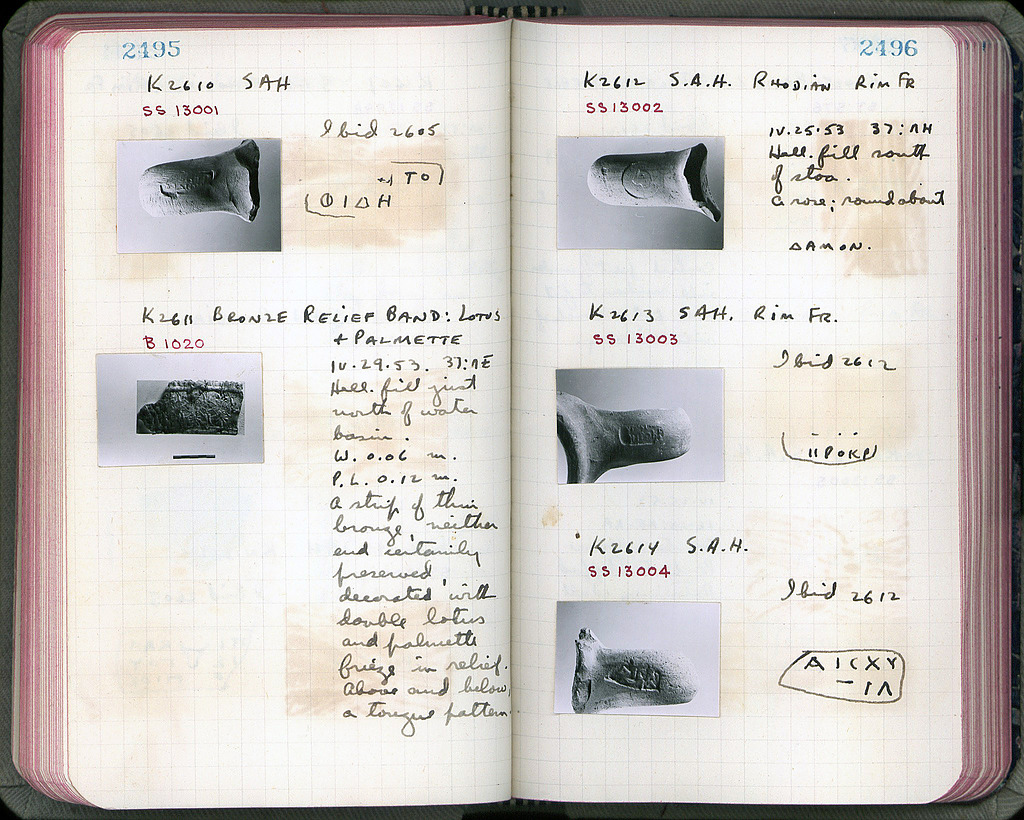 2495
K2610 SAH
SS 13001
Ibid 2605
ΤΟ
ΦΙΔΗ
K2611 BRONZE RELIEF BAND: LOTUS
+ PALMETTE
B 1020
IV·29·53. 37:ΛΕ
Hell. fill just
north of water
basin.
W. 0.06 m.
P.L. 0.12 m.
A strip of thin
bronze, neither
end certainly
preserved,
decorated with
double lotus
and palmette
frieze in relief.
Above and below,
a tongue pattern.
2496
K2612 S.A.H. RHODIAN RIM FR
SS 13002
IV·25·53 37:ΛΗ
Hell. fill south
of stoa.
A rose; roundabout
ΔΑΜΟΝ.
K2613 SAH. RIM FR.
SS 13003
Ibid 2612
ΙΙΡΟΚΡ
K2614 S.A.H.
SS 13004
Ibid 2612
ΑΙΣΧΥ